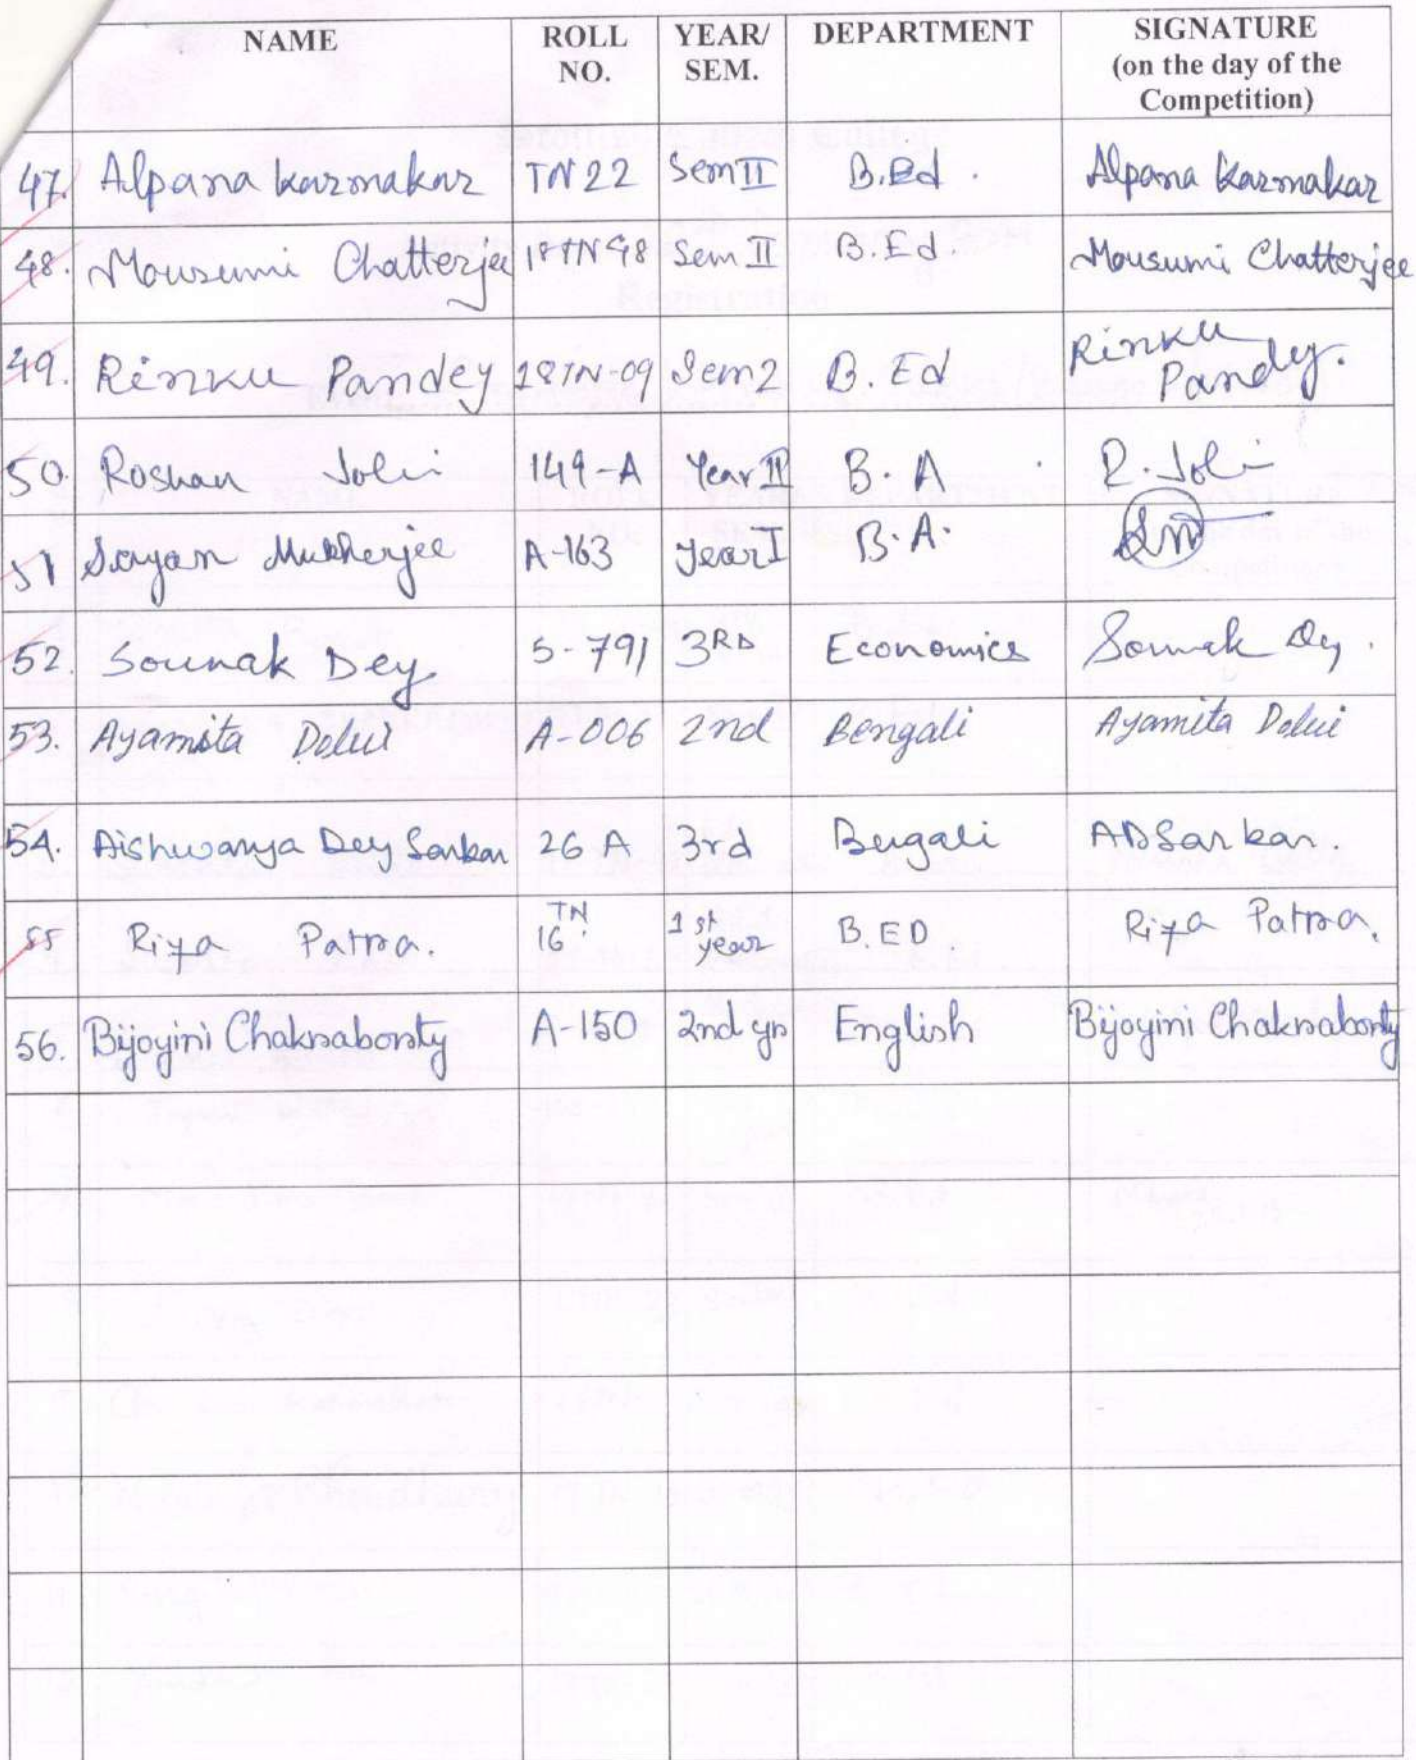 NAME ROLL NO. YEAR/ SEM. DEPARTMENT SIGNATURE (on the day of the Competition)
47. Alpana Karmakar TN 22 Sem II B.Ed. Alpana Karmakar
48. Mousumi Chatterjee 18TN48 Sem II B.Ed. Mousumi Chatterjee
49. Rinku Pandey 18TN-09 Sem 2 B. Ed Rinku Pandey.
50. Roshan 149-A Year II B.A R.
51 Sayan Mukherjee A-163 Year I B.A.
52. Sounak Dey S-791 3RD Economics Sounak Dey.
53. Ayamita Dolui A-006 2nd Bengali Ayamita Dolui
54. Aishwarya Dey Sarkar 26 A 3rd Bengali ADSarkar.
55 Riya Patra. TN 16. 1st year B.ED. Riya Patra.
56. Bijoyini Chakraborty A-150 2nd yr English Bijoyini Chakraborty